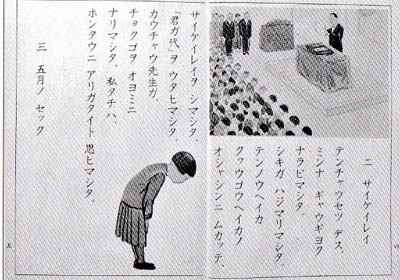 二 サイケイレイ
テンチャウセツ デス。
ミンナ ギャウギヨク
ナラビマシタ。
シキガ ハジマリマシタ。
テンノウヘイカ
クヮウゴウヘイカノ
オシャシンニ ムカッテ、
四
サイケイレイヲ シマシタ。
「君ガ代」ヲ ウタヒマシタ。
カウチャウ先生ガ、
チョクゴヲ オヨミニ
ナリマシタ。私タチハ、
ホンタウニ アリガタイト 思ヒマシタ。
三 五月ノ セック
五